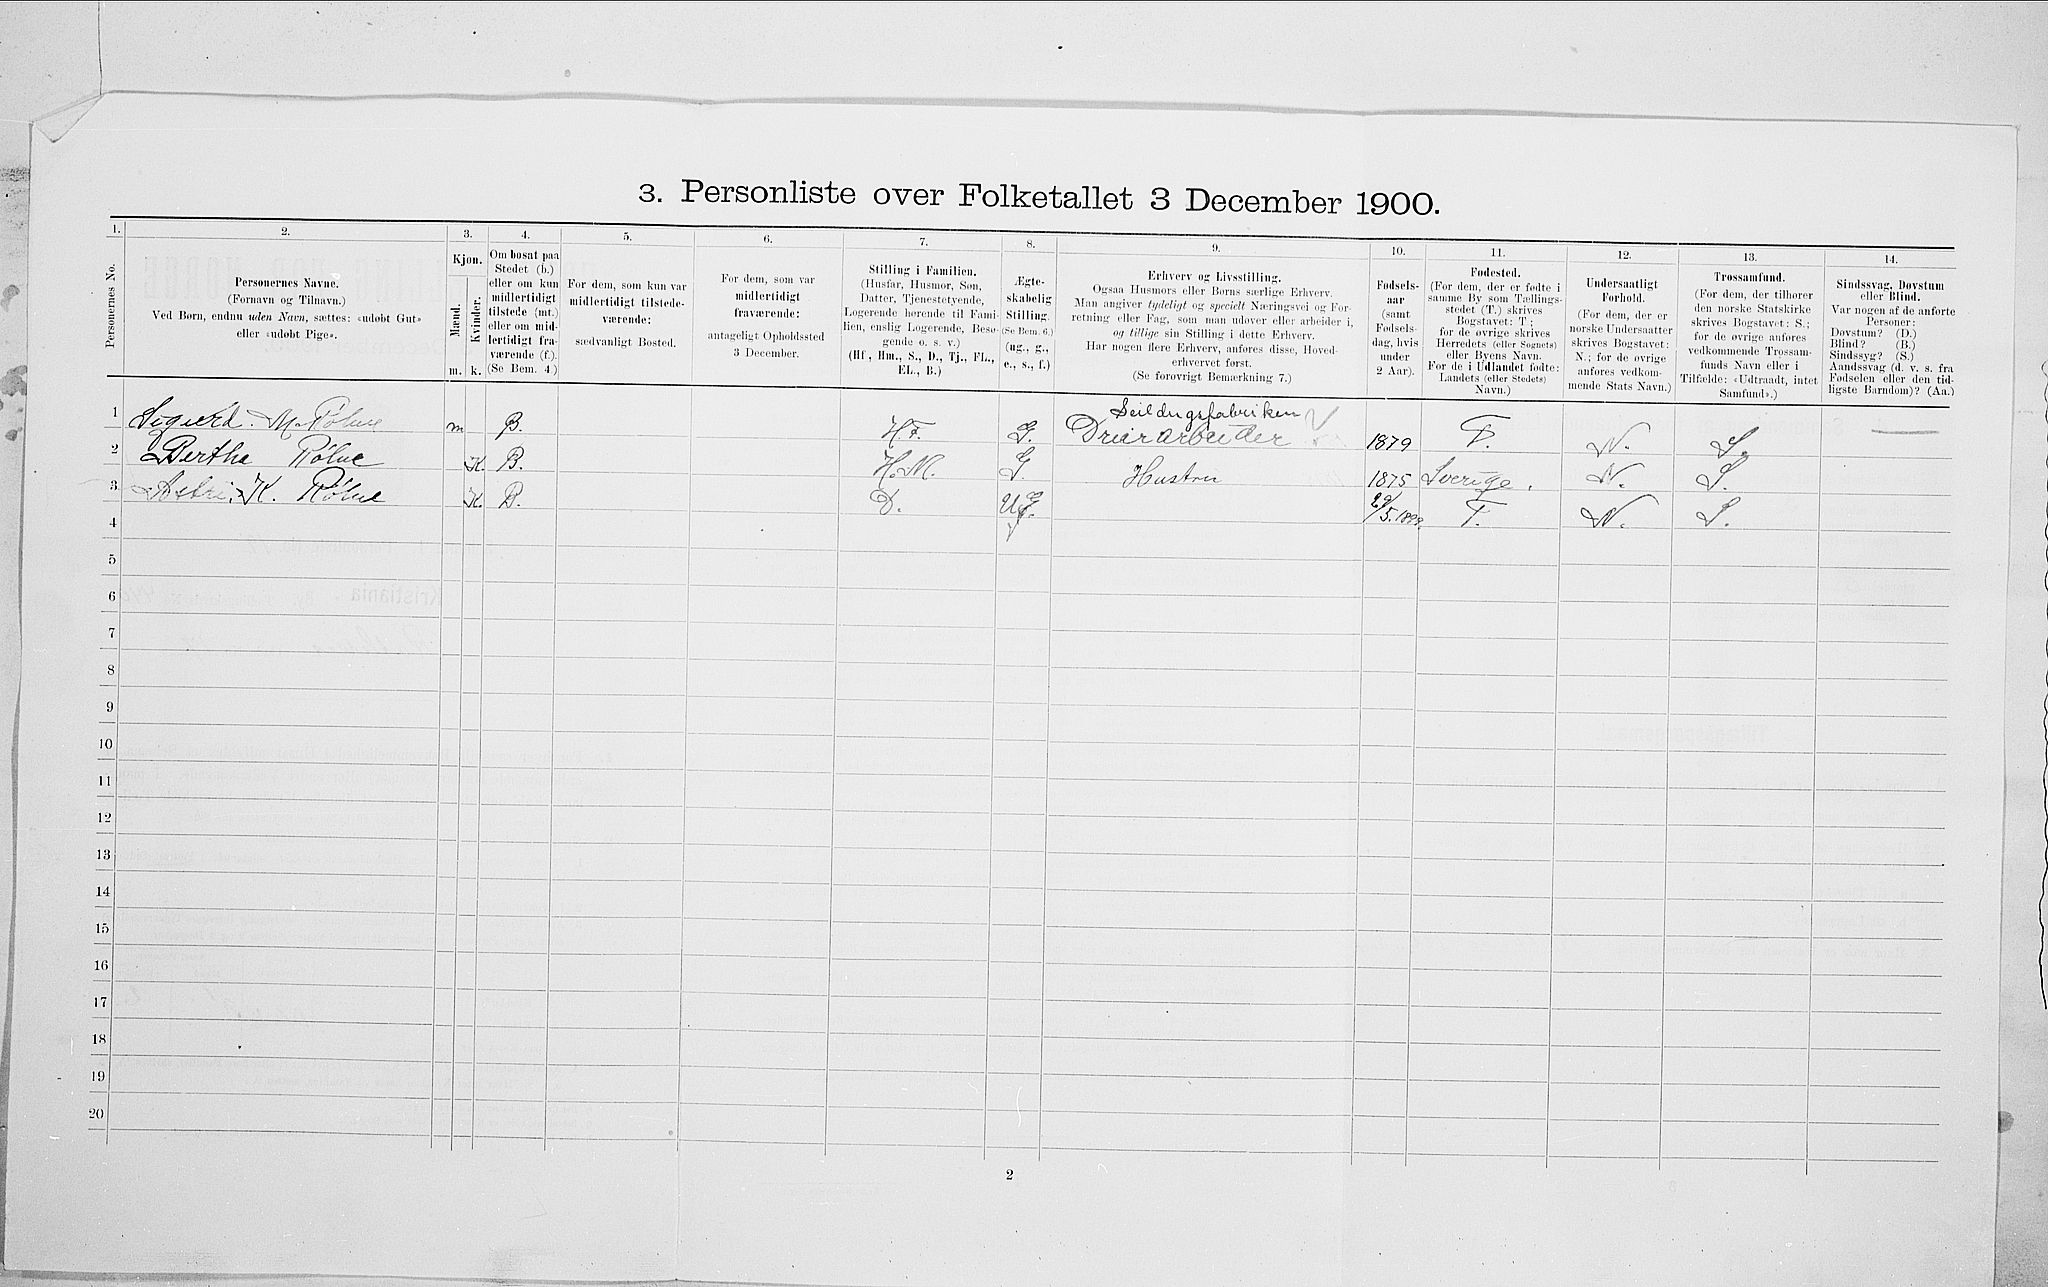 3. Personliste over Folketallet 3 December 1900.
1. 2. 3. 4. 5. 6. 7. 8. 9. 10. 11. 12. 13. 14.
Personernes No.
Personernes Navne.
(Fornavn og Tilnavn.)
Ved Børn, endnu uden Navn, sættes: «udøbt Gut»
eller «udøbt Pige».
Kjøn.
Mænd.
Kvinder.
m. k.
Om bosat paa
Stedet (b.)
eller om kun
midlertidigt
tilstede (mt.)
eller om mid-
lertidigt fra-
værende (f.).
(Se Bem. 4.)
For dem, som kun var
midlertidigt tilstede-
værende:
sædvanligt Bosted.
For dem, som var
midlertidigt
fraværende:
antageligt Opholdssted
3 December.
Stilling i Familien.
(Husfar, Husmor, Søn,
Datter, Tjenestetyende,
Logerende hørende til Fami-
lien, enslig Logerende, Besø-
gende o. s. v.)
(Hf., Hm., S., D., Tj., FL.,
EL., B.)
Ægte-
skabelig
Stilling.
(Se Bem. 6.)
(ug., g.,
e., s., f.)
Erhverv og Livsstilling.
Ogsaa Husmors eller Børns særlige Erhverv.
Man angiver tydeligt og specielt Næringsvei og For-
retning eller Fag, som man udøver eller arbeider i,
og tillige sin Stilling i dette Erhverv.
Har nogen flere Erhverv, anføres disse, Hoved-
erhvervet først.
(Se forøvrigt Bemærkning 7.)
Fødsels-
aar
(samt
Fødsels-
dag, hvis
under
2 Aar).
Fødested.
(For dem, der er fødte i
samme By som Tællings-
stedet (T.) skrives
Bogstavet: T;
for de øvrige skrives
Herredets (eller Sognets)
eller Byens Navn.
For de i Udlandet fødte:
Landets (eller Stedets)
Navn.)
Undersaatligt
Forhold.
(For dem, der er
norske Undersaatter
skrives Bogstavet:
N.; for de øvrige
anføres vedkom-
mende Stats Navn.)
Trossamfund.
(For dem, der tilhører
den norske Statskirke
skrives Bogstavet: S.;
for de øvrige anføres
vedkommende Trossam-
funds Navn eller i
Tilfælde: «Udtraadt, intet
Samfund».)
Sindssvag, Døvstum
eller Blind.
Var nogen af de anførte
Personer:
Døvstum? (D.)
Blind? (B.)
Sindssyg? (S.)
Aandssvag (d. v. s. fra
Fødselen eller den tid-
ligste Barndom)? (Aa.)
Seildugsfabriken
1 Sigurd. M. Rølne m B. H F. G. 1879 T. N. S.
2 Bertha Rølne K. B. H. M. G. Hustru 1875 Sverige. N. S.
3 Astri. K. Rølne K. B. D. U G. T. N. S.
4
5
6
7
8
9
10
11
12
13
14
15
16
17
18
19
20
2